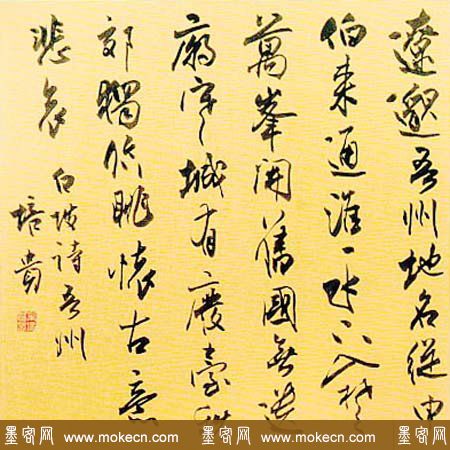 遼邈吾州地名從申
伯来通淮一水下入楚
萬峯開舊國無遺
廟空城有廢臺
郊獨眺懷古意
悲哀
白坡诗吾州
培贵
墨客网 www.mokecn.com 墨客网 www.mokecn.com 墨客网